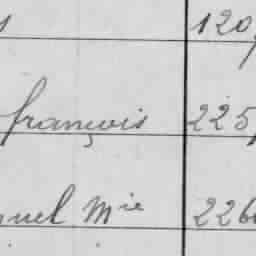 120
françois 225
uel Mie 226